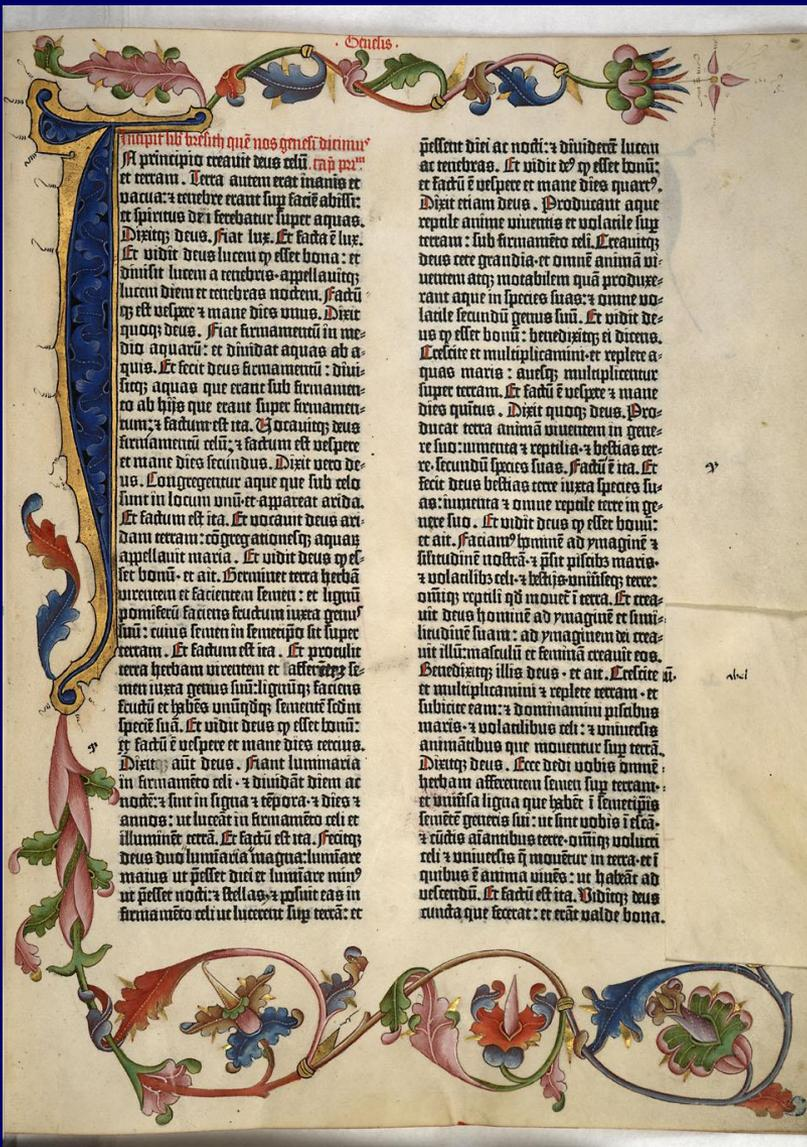 Genesis
Incipit liber bresith quē nos genesī dicimus
In principio creavit deus celū cap prim
et terram. Terra autem erat inanis et
vacua: ⁊ tenebre erant sup faciē abissi:
et spiritus dei ferebatur super aquas.
Dixitq; deus. Fiat lux. Et facta ē lux.
Et vidit deus lucem qꝫ esset bona: et
divisit lucem a tenebris · appellavitq;
lucem diem et tenebras noctem. Factū
q; est vespere et mane dies unus. Dixit
quoq; deus. Fiat firmamentū in me⸗
dio aquarū: et dividat aquas ab a⸗
quis. Et fecit deus firmamentū: divi⸗
sitq; aquas que erant sub firmamen⸗
to ab hijs que erant super firmamen⸗
tum: ⁊ factum est ita. Vocavitq; deus
firmamentū celū: ⁊ factum est vespere
et mane dies secundus. Dixit vero de⸗
us. Congregentur aque que sub celo
sunt in locum unū · et appareat arida.
Et factum est ita. Et vocavit deus ari⸗
dam terram: cōgregationesq; aquaꝝ
appellavit maria. Et vidit deus qꝫ es⸗
set bonū · et ait. Germinet terra herbā
virentem et facientem semen: et lignū
pomiferū faciens fructum iuxta genus
suū: cuius semen in semetipo sit super
terram. Et factum est ita. Et protulit
terra herbam virentem et afferētez se⸗
men iuxta genus suū: lignūq; faciens
fructū et habēs unūqdq; sementē scdm
speciē suā. Et vidit deus qꝫ esset bonū:
et factū ē vespere et mane dies tercius.
Dixitq; aūt deus. Fiant luminaria
in firmamēto celi · ⁊ dividāt diem ac
noctē: ⁊ sint in signa ⁊ tēpora · ⁊ dies ⁊
annos: ut luceāt in firmamēto celi et
illuminēt terrā. Et factū est ita. Fecitq;
deus duo lumīaria magna: lumīare
maius ut ꝑesset diei et lumīare minus
ut ꝑesset nocti: ⁊ stellas, ⁊ posuit eas in
firmamēto celi ut lucerent sup terrā: et
ꝑessent diei ac nocti: ⁊ dividerēt lucem
ac tenebras. Et vidit deus qꝫ esset bonū:
et factū ē vespere et mane dies quartus.
Dixit etiam deus. Producant aque
reptile anime viventis et volatile sup
terram: sub firmamēto celi. Creavitq;
deus cete grandia · et omnē animā vi⸗
ventem atq; motabilem quā produxe⸗
rant aque in species suas: ⁊ omne vo⸗
latile secundū genus suū. Et vidit de⸗
us qꝫ esset bonū: benedixitq; ei dicens.
Crescite et multiplicamini · et replete a⸗
quas maris: avesq; multiplicentur
super terram. Et factū ē vespere ⁊ mane
dies quītus. Dixit quoq; deus. Pro⸗
ducat terra animā viventem in gene⸗
re suo: iumenta ⁊ reptilia · ⁊ bestias ter⸗
re · secundū species suas. Factū ē ita. Et
fecit deus bestias terre iuxta species su⸗
as: iumenta ⁊ omne reptile terre in ge⸗
nere suo. Et vidit deus qꝫ esset bonū:
et ait. Faciamus hominē ad ymaginē ⁊
similitudinē nostrā · ⁊ psit piscibz maris ·
⁊ volatilibz celi · ⁊ bestijs · univūseq; terre:
omīq; reptili qd movet ī terra. Et crea⸗
vit deus hominē ad ymaginē et simi⸗
litudinē suam: ad ymaginem dei crea⸗
vit illū: masculū et feminā creavit eos.
Benedixitq; illis deus · et ait. Crescite
et multiplicamini ⁊ replete terram · et
subicite eam: ⁊ dominamini piscibus
maris · ⁊ volatilibus celi: ⁊ universis
animātibus que moventur sup terrā.
Dixitq; deus. Ecce dedi vobis omnē
herbam afferentem semen sup terram ·
et univūsa ligna que habēt ī semetipis
semētē generis sui: ut sint vobis ī escā ·
⁊ cūctis aīantibus terre · omīq; volucri
celi ⁊ universis q̄ movētur in terra · et ī
quibus ē anima vivēs: ut habeāt ad
vescendū. Et factū est ita. Viditq; deus
cuncta que fecerat: et erāt valde bona.